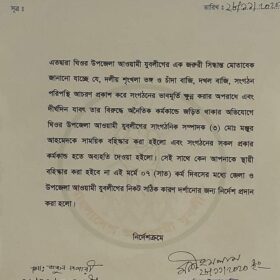 সূত্র :
তারিখ :
এতদ্বারা ঘিওর উপজেলা আওয়ামী যুবলীগের এক জরুরী সিদ্ধান্ত মোতাবেক
জানানো যাচ্ছে যে, দলীয় শৃংখলা ভঙ্গ ও চাঁদা বাজি, দখল বাজি, সংগঠন
পরিপন্থি আচরণ প্রকাশ করে সংগঠনের ভাবমূর্তি ক্ষুন্ন করার অপরাধে এবং
দীর্ঘদিন যাবৎ তার বিরুদ্ধে অনৈতিক কর্মকান্ডে জড়িত থাকার অভিযোগে
ঘিওর উপজেলা আওয়ামী যুবলীগের সাংগঠনিক সম্পাদক (৩) মোঃ মঞ্জুর
আহমেদকে সাময়িক বহিস্কার করা হইলো এবং সংগঠনের সকল প্রকার
কর্মকান্ড হতে অব্যহতি দেওয়া হইলো। সেই সাথে কেন আপনাকে স্থায়ী
বহিস্কার করা হইবে না এই মর্মে ০৭ (সাত) কর্ম দিবসের মধ্যে জেলা ও
উপজেলা আওয়ামী যুবলীগের নিকট সঠিক কারণ দর্শানোর জন্য নির্দেশ প্রদান
করা হলো।
নির্দেশক্রমে